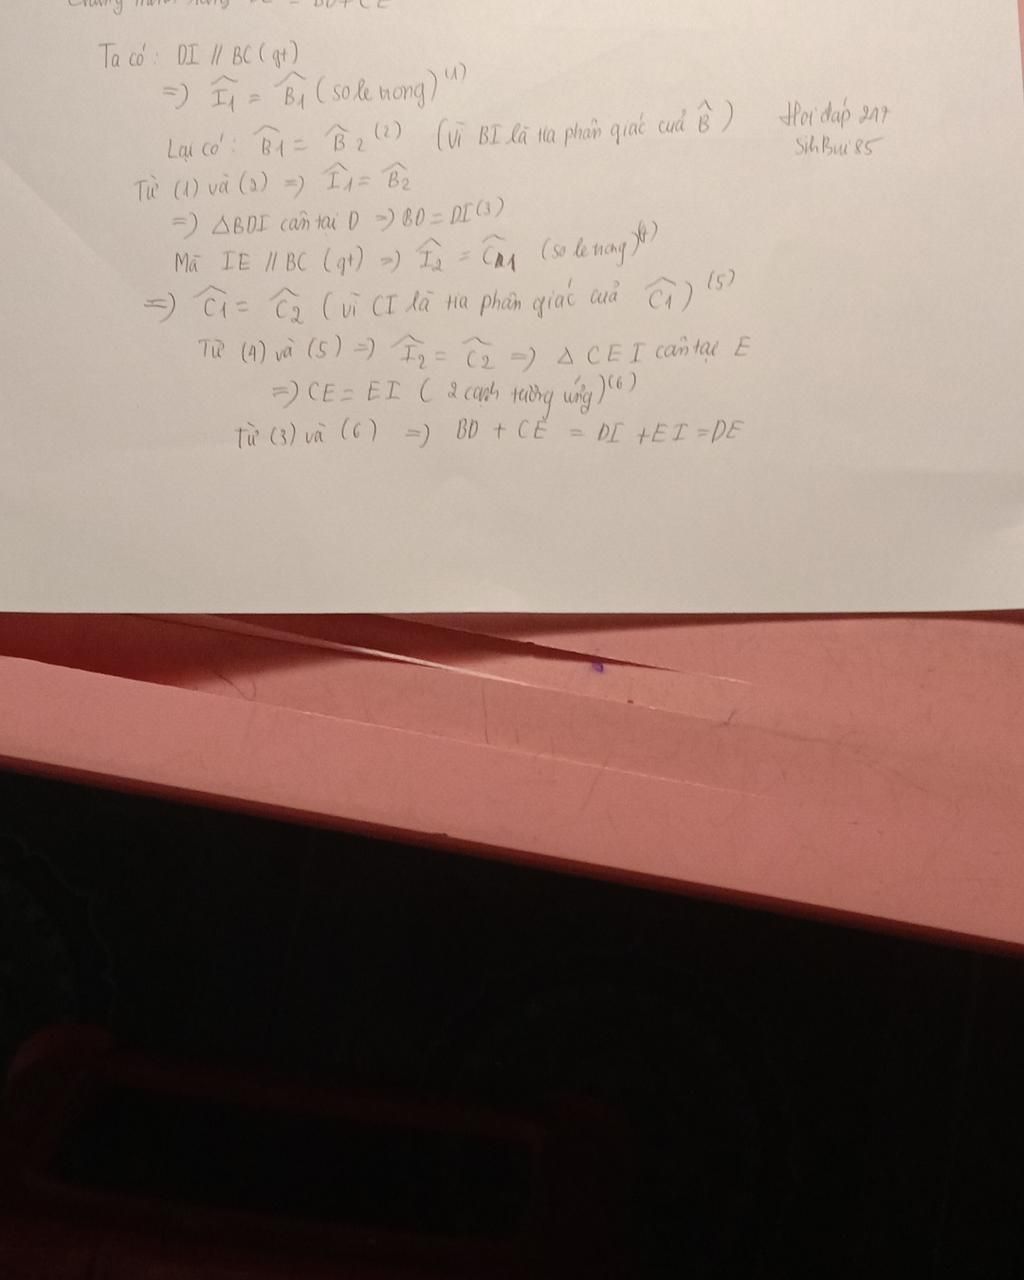 Chứng minh rằng DE = BD + CE
Ta có: DI // BC (gt)
=) Î1 = B̂1 (so le trong) (1)
Lại có: B̂1 = B̂2 (2) (vì BI là tia phân giác cuả B̂)
Hoi đáp 247
SihBui 85
Từ (1) và (2) =) Î1 = B̂2
=) △BDI cân tại D =) BD = DI (3)
Mà IE // BC (gt) =) Î2 = Ĉ1 (so le trong) (4)
=) Ĉ1 = Ĉ2 (vì CI là tia phân giác cuả Ĉ1) (5)
Từ (4) và (5) =) Î2 = Ĉ2 =) △ CEI cân tại E
=) CE = EI (2 cạnh tương ứng) (6)
Từ (3) và (6) =) BD + CE = DI + EI = DE